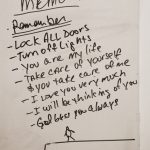 MEMO
. Remember
- Lock All Doors
- Turn off Lights
- You are my life
- Take care of yourself
& you take care of me
- I love you very much
- I will be thinking of you
- God bless you always